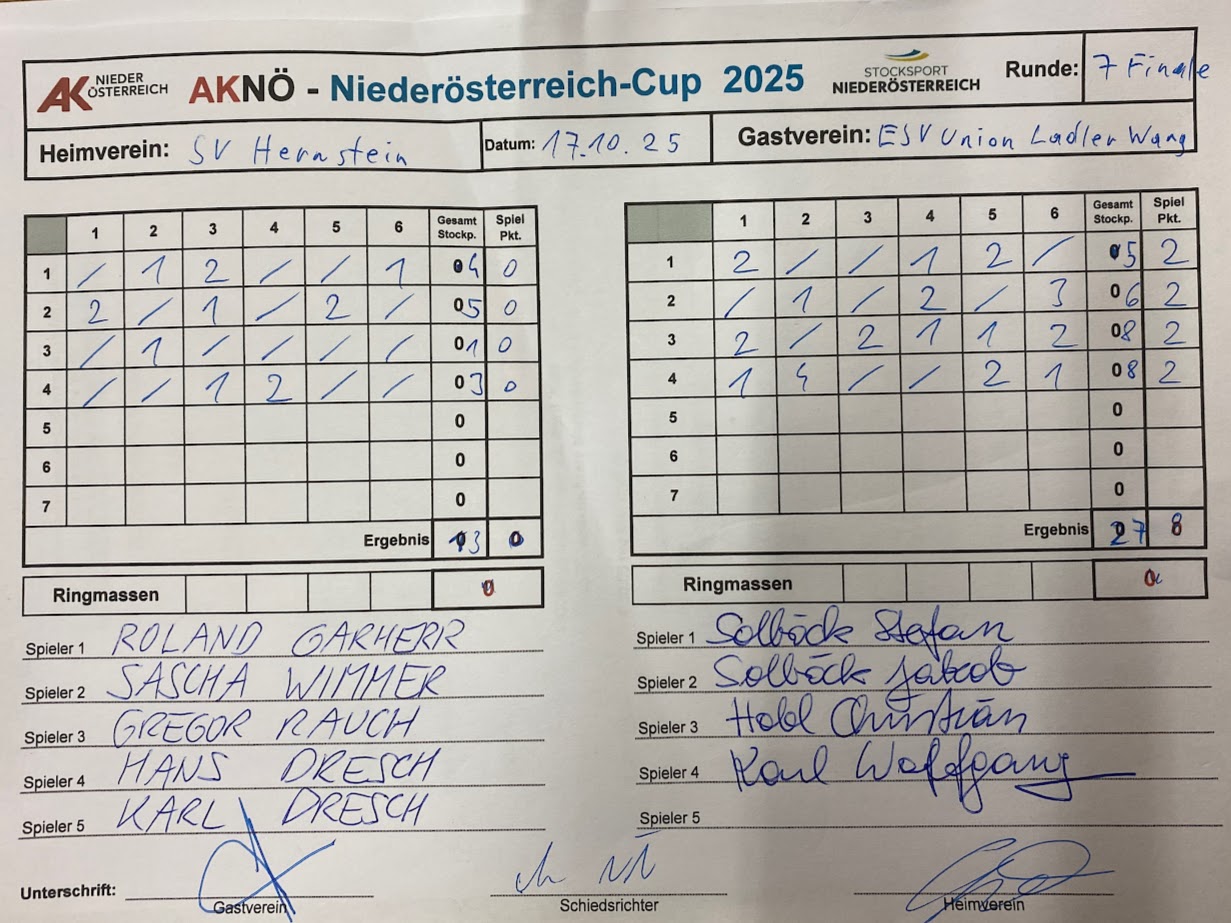 AK NIEDER ÖSTERREICH AKNÖ - Niederösterreich-Cup 2025 STOCKSPORT NIEDERÖSTERREICH Runde: 7 Finale
Heimverein: SV Hernstein Datum: 17.10.25 Gastverein: ESV Union Ladler Wang
1 2 3 4 5 6 Gesamt Stockp. Spiel Pkt. 1 2 3 4 5 6 Gesamt Stockp. Spiel Pkt.
1 / 1 2 / / 1 04 0 1 2 / / 1 2 / 05 2
2 2 / 1 / 2 / 05 0 2 / 1 / 2 / 3 06 2
3 / 1 / / / / 01 0 3 2 / 2 1 1 2 08 2
4 / / 1 2 / / 03 0 4 1 4 / / 2 1 08 2
5 0 5 0
6 0 6 0
7 0 7 0
Ergebnis 13 0 Ergebnis 27 8
Ringmassen 0 Ringmassen 0
Spieler 1 ROLAND GARHERR Spieler 1 Solböck Stefan
Spieler 2 SASCHA WIMMER Spieler 2 Solböck Jakob
Spieler 3 GREGOR RAUCH Spieler 3 Christian
Spieler 4 HANS DRESCH Spieler 4 Karl Wolfgang
Spieler 5 KARL DRESCH Spieler 5
Unterschrift: Gastverein Schiedsrichter Heimverein